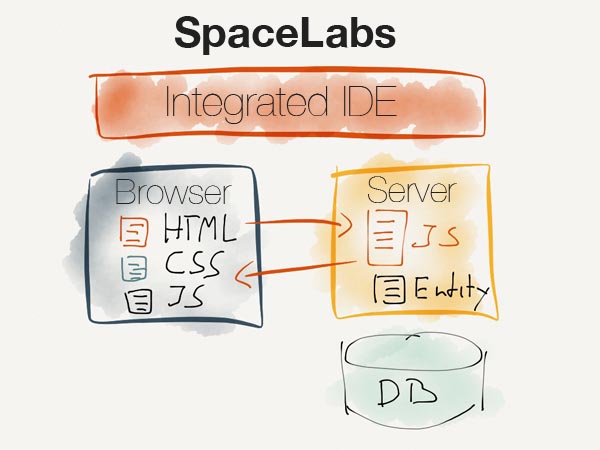 SpaceLabs
Integrated IDE
Browser
HTML
CSS
JS
Server
JS
Entity
DB